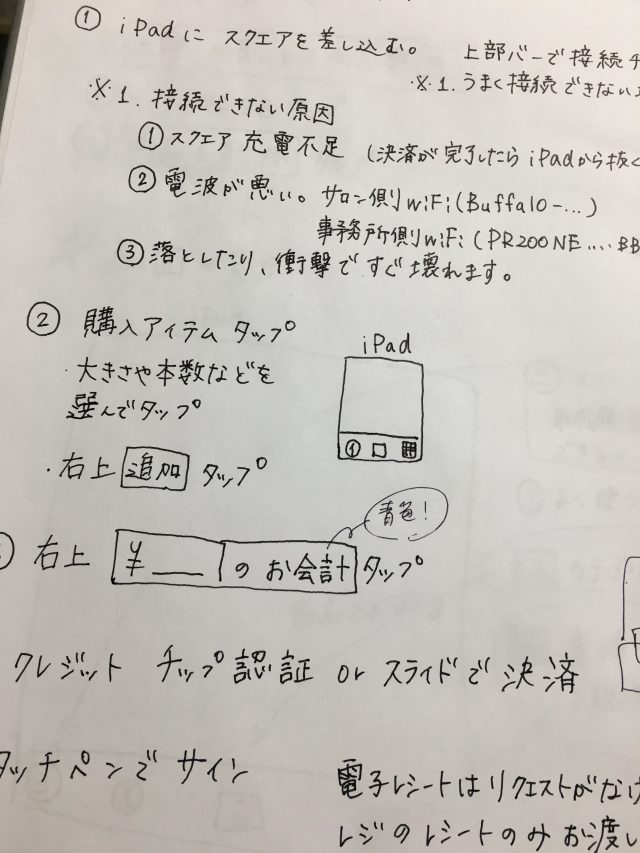 ① iPadに スクエアを差し込む。
上部バーで接続
※1. うまく接続できない
※1. 接続できない原因
① スクエア 充電不足 (決済が完了したらiPadから抜く
② 電波が悪い。サロン側WiFi(Buffalo-...)
事務所側WiFi (PR200NE....BB
③ 落としたり、衝撃ですぐ壊れます。
② 購入アイテム タップ
・大きさや本数などを
選んでタップ
iPad
①
・右上 追加 タップ
青色!
右上 ¥___ の お会計 タップ
クレジット チップ認証 or スライドで決済
タッチペンでサイン
電子レシートはリクエストがなけ
レジのレシートのみお渡し